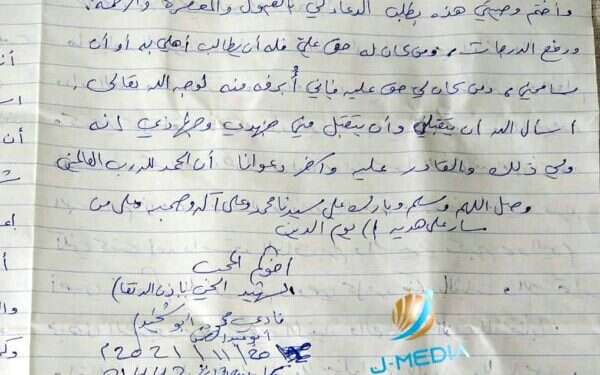 وأختم وصيتي هذه بطلب الدعاء لي القبول والمغفرة والرحمة.
ورفع الدرجات، ومن كان له حق علي فله أن يطالب أهلي به أو أن
يسامحني، ومن كان لي حق عليه فإني أبرئه منه لوجه الله تعالى.
أسأل الله أن يتقبلني وأن يتقبل مني جهدي وجهادي إنه
ولي ذلك والقادر عليه وآخر دعوانا أن الحمد لله رب العالمين
وصل اللهم وسلم وبارك على سيدنا محمد وعلى آله وصحبه وعلى من
سار على هديه إلى يوم الدين
أخوكم المحب
الشهيد الحي (بإذن الله تعالى)
فادي محمود أبو شخيدم
2021/11/20م
J-MEDIA